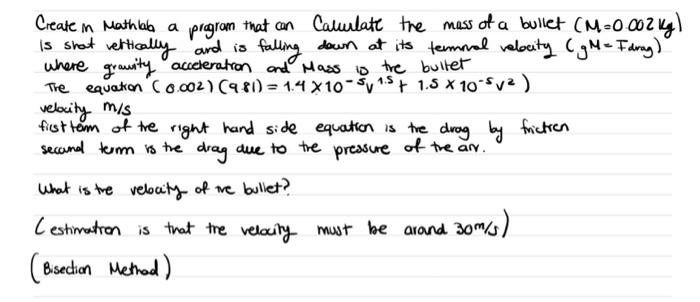 Create in Mathlab a program that can Calculate the mass of a bullet (M=0.002 kg)
is shot vertically and is falling down at its terminal velocity (gM = Fdrag)
where gravity acceleration and Mass is the bullet
The equation (0.002)(9.81) = 1.4 X 10⁻⁵v¹·⁵ + 1.5 X 10⁻⁵v²)
velocity m/s
first term of the right hand side equation is the drag by friction
second term is the drag due to the pressure of the air.
What is the velocity of the bullet?
(estimation is that the velocity must be around 30 m/s)
(Bisection Method)